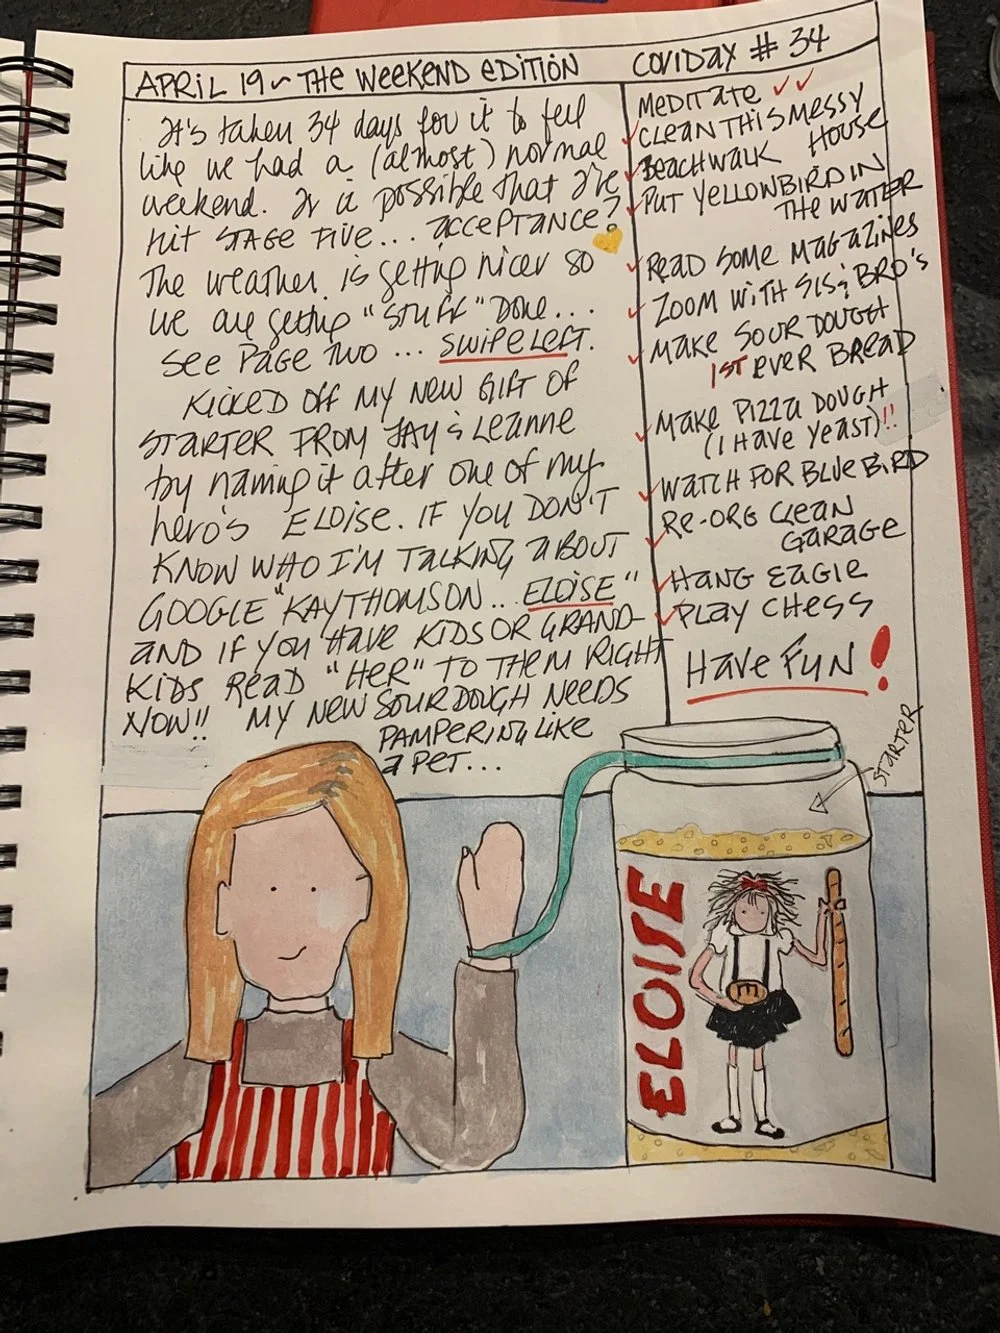 APRIL 19 ~ THE WEEKEND EDITION
COVIDAY # 34
It's taken 34 days for it to feel
like we had a (almost) normal
weekend. Is it possible that I've
hit STAGE FIVE... acceptance?
The weather is getting nicer so
we are getting "STUFF" DONE...
see PAGE TWO ... SWIPE LEFT.
KICKED OFF MY NEW GIFT OF
STARTER FROM JAY & LEANNE
by naming it after one of my
hero's ELOISE. IF YOU DON'T
KNOW WHO I'M TALKING ABOUT
GOOGLE "KAY THOMSON.. ELOISE"
AND IF YOU HAVE KIDS OR GRAND-
KIDS READ "HER" TO THEM RIGHT
NOW!! MY NEW SOURDOUGH NEEDS
PAMPERING LIKE
A PET...
MEDITATE ✓✓
✓ CLEAN THIS MESSY
HOUSE
✓ BEACHWALK
✓ PUT YELLOWBIRD IN
THE WATER
✓ READ SOME MAGAZINES
✓ ZOOM WITH SIS & BRO'S
✓ MAKE SOUR DOUGH
1ST EVER BREAD
✓ MAKE PIZZA DOUGH
(I HAVE YEAST)!!
✓ WATCH FOR BLUEBIRD
✓ RE-ORG CLEAN
GARAGE
✓ HANG EAGLE
✓ PLAY CHESS
HAVE FUN!
STARTER
ELOISE
E